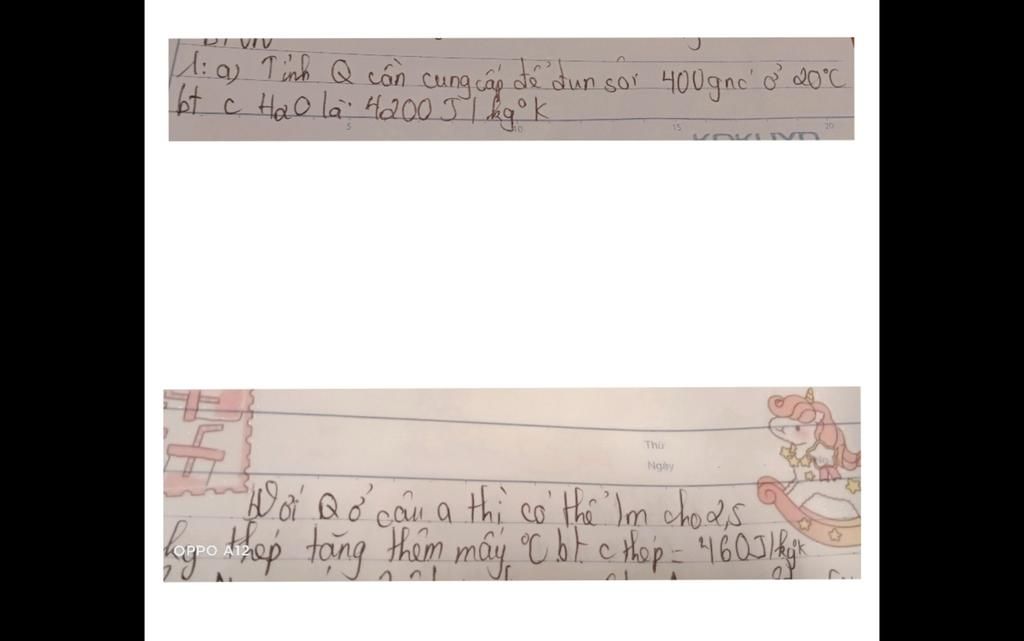 BTVN
1: a) Tính Q cần cung cấp để đun sôi 400g nc' ở 20°C
bt c H2O là: 4200 J / kg°K
5 10 15 20
KOKUYO
Thứ
Ngày
Với Q ở câu a thì có thể lm cho 2,5
kg thép tăng thêm mấy °C bt c thép = 460J/kg°K
OPPO A12